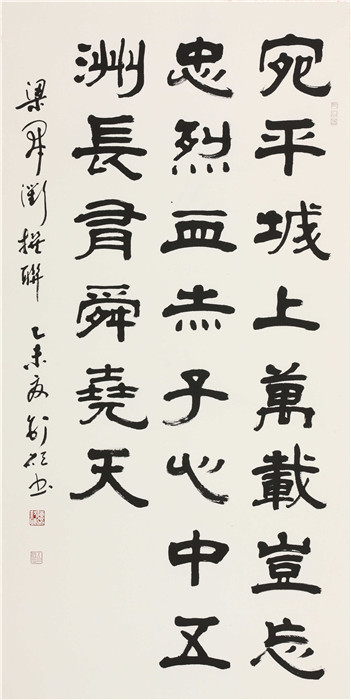 宛平城上萬載豈忘
忠烈血赤子心中五
洲長有舜堯天
梁 撰聯 乙未夏 书